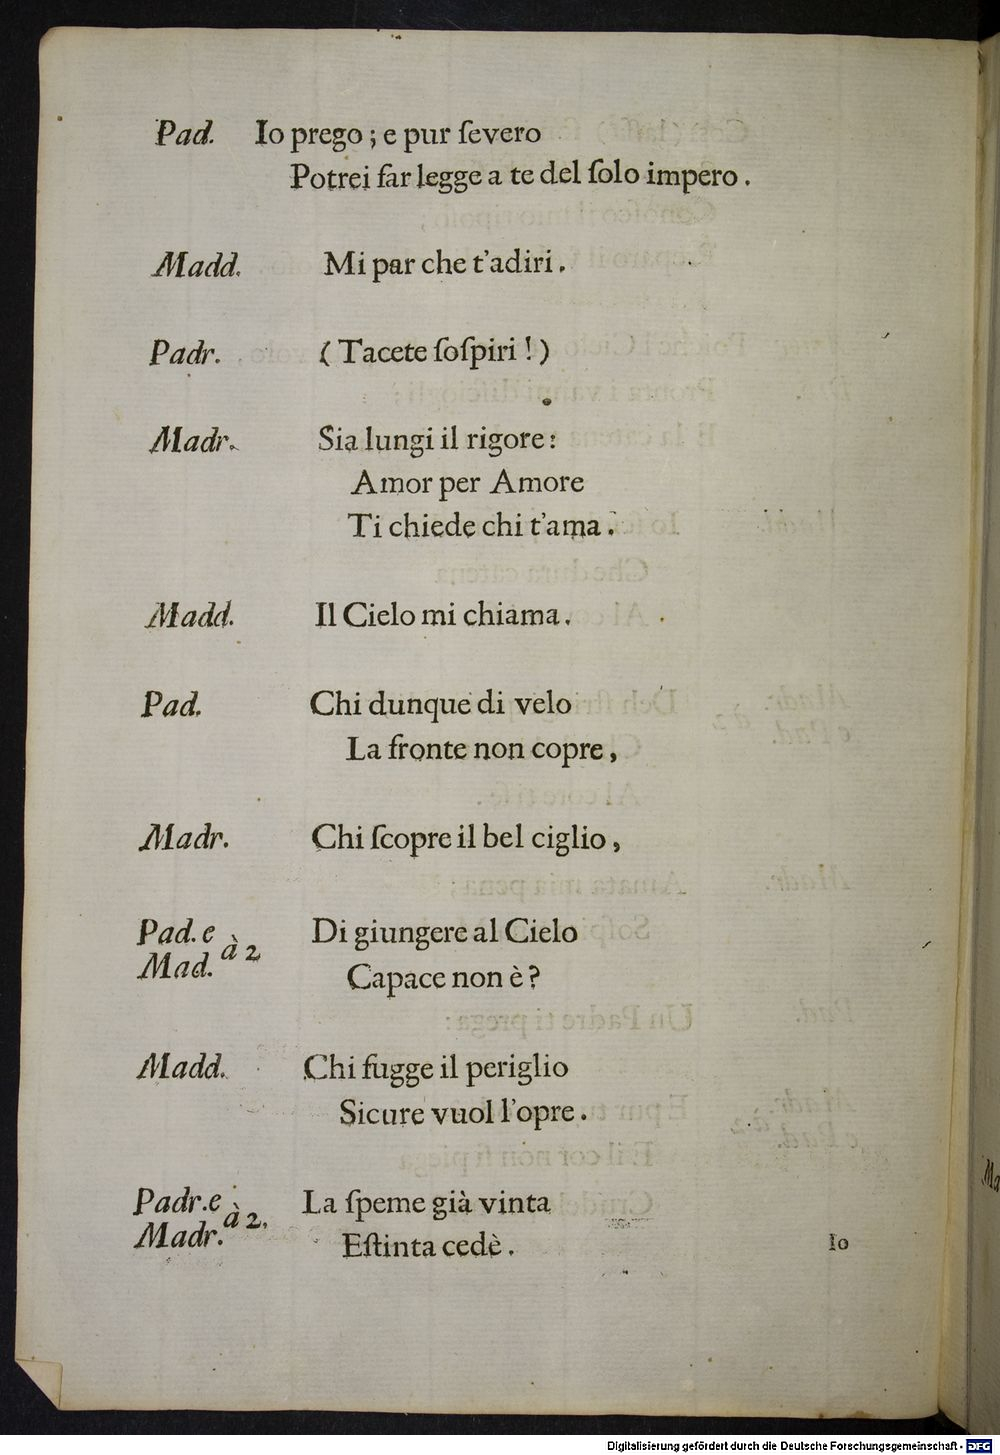 Pad. Io prego ; e pur ſevero
Potrei far legge a te del ſolo impero .
Madd. Mi par che t'adiri .
Padr. ( Tacete ſoſpiri ! )
Madr. Sia lungi il rigore :
Amor per Amore
Ti chiede chi t'ama .
Madd. Il Cielo mi chiama .
Pad. Chi dunque di velo
La fronte non copre ,
Madr. Chi ſcopre il bel ciglio ,
Pad. e Mad. à 2 Di giungere al Cielo
Capace non è ?
Madd. Chi fugge il periglio
Sicure vuol l'opre .
Padr. e Madr. à 2. La ſpeme già vinta
Eſtinta cedè .
Io
Digitalisierung gefördert durch die Deutsche Forschungsgemeinschaft - DFG